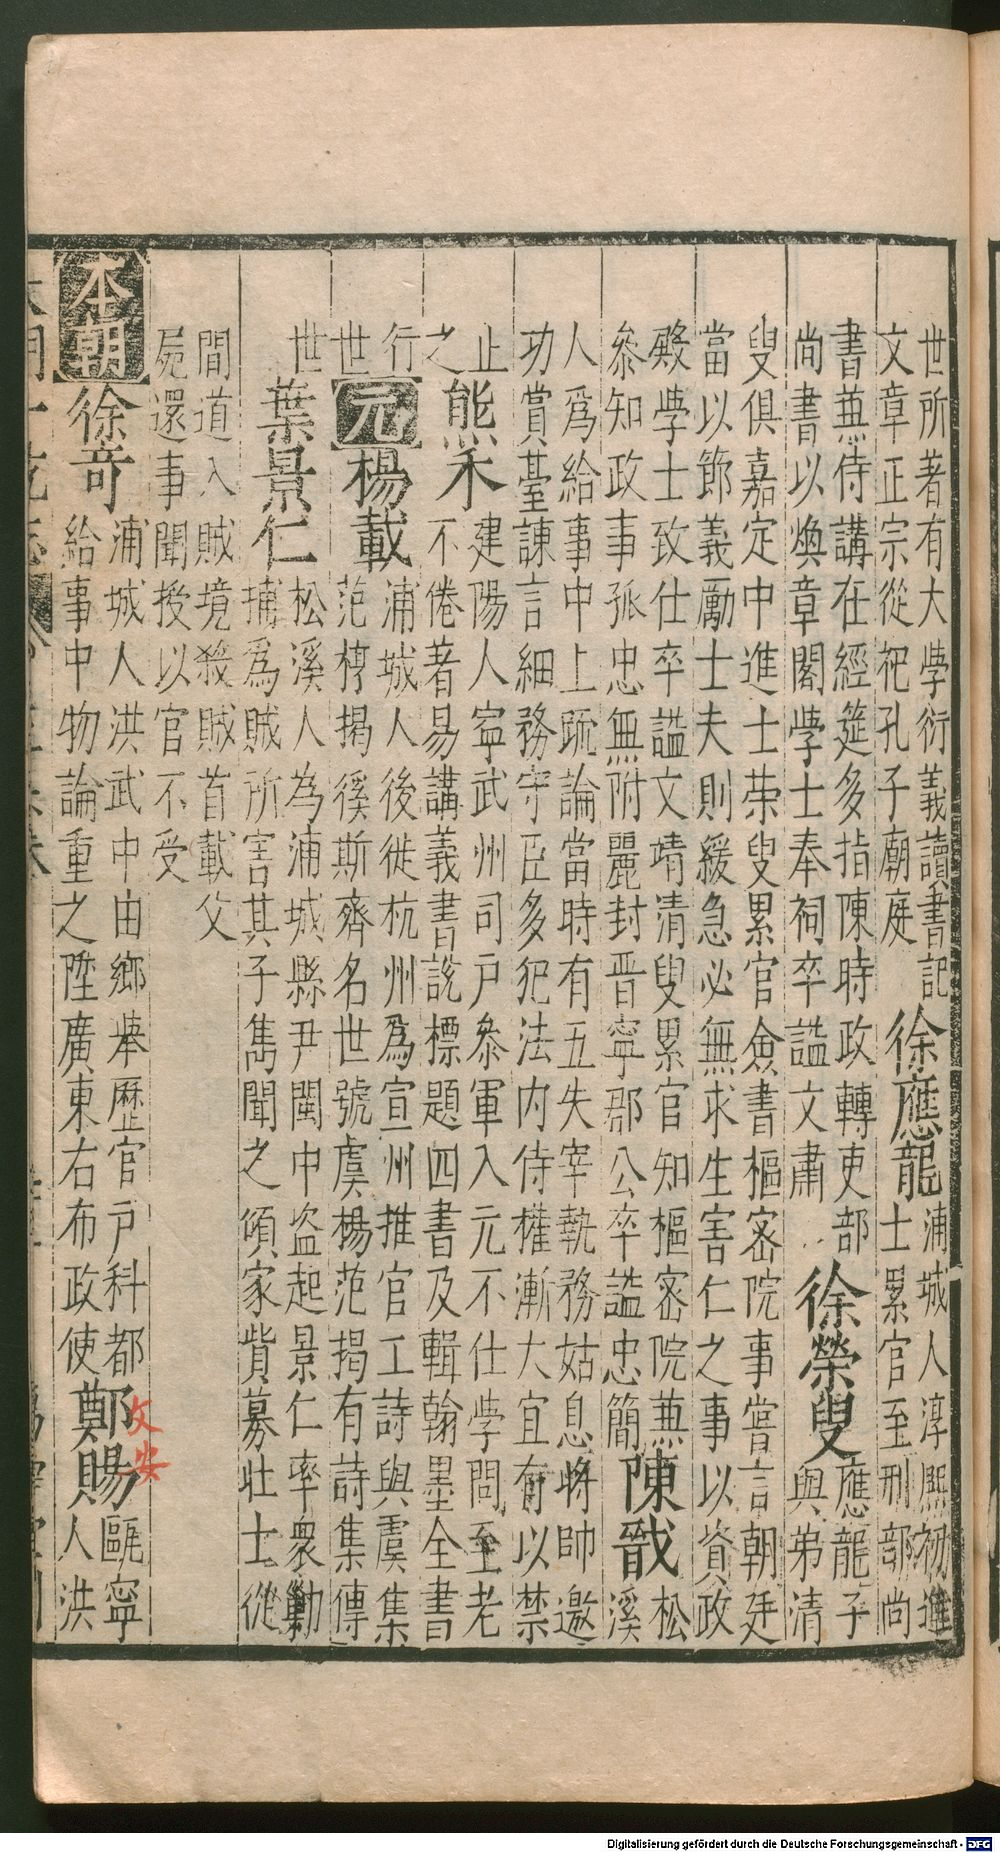 世所著有大學衍義讀書記
文章正宗從祀孔子廟庭
徐應龍
浦城人淳熙初進
士累官至刑部尚
書兼侍講在經筵多指陳時政轉吏部
尚書以煥章閣學士奉祠卒謚文肅
徐榮叟
應龍子
與弟清
叟俱嘉定中進士榮叟累官僉書樞密院事嘗言朝廷
當以節義勵士夫則緩急必無求生害仁之事以資政
殿學士致仕卒謚文靖清叟累官知樞密院兼
參知政事孤忠無附麗封晋寧郡公卒謚忠簡
陳戩
松
溪
人爲給事中上疏論當時有五失宰執務姑息將帥邀
功賞臺諫言細務守臣多犯法内侍權漸大宜有以禁
止
之
熊禾
建陽人寧武州司戶參軍入元不仕學問至老
不倦著易講義書說標題四書及輯翰墨全書
行
世
元
楊載
浦城人後徙杭州爲宣州推官工詩與虞集
范梈揭徯斯齊名世號虞楊范揭有詩集傳
世
葉景仁
松溪人為浦城縣尹閩中盜起景仁率衆勦
捕爲賊所害其子雋聞之傾家貲募壯士從
間道入賊境殺賊首載父
屍還事聞授以官不受
本朝
徐奇
浦城人洪武中由鄉舉歷官戶科都
給事中物論重之陞廣東右布政使
鄭賜
文安
甌寧
人洪